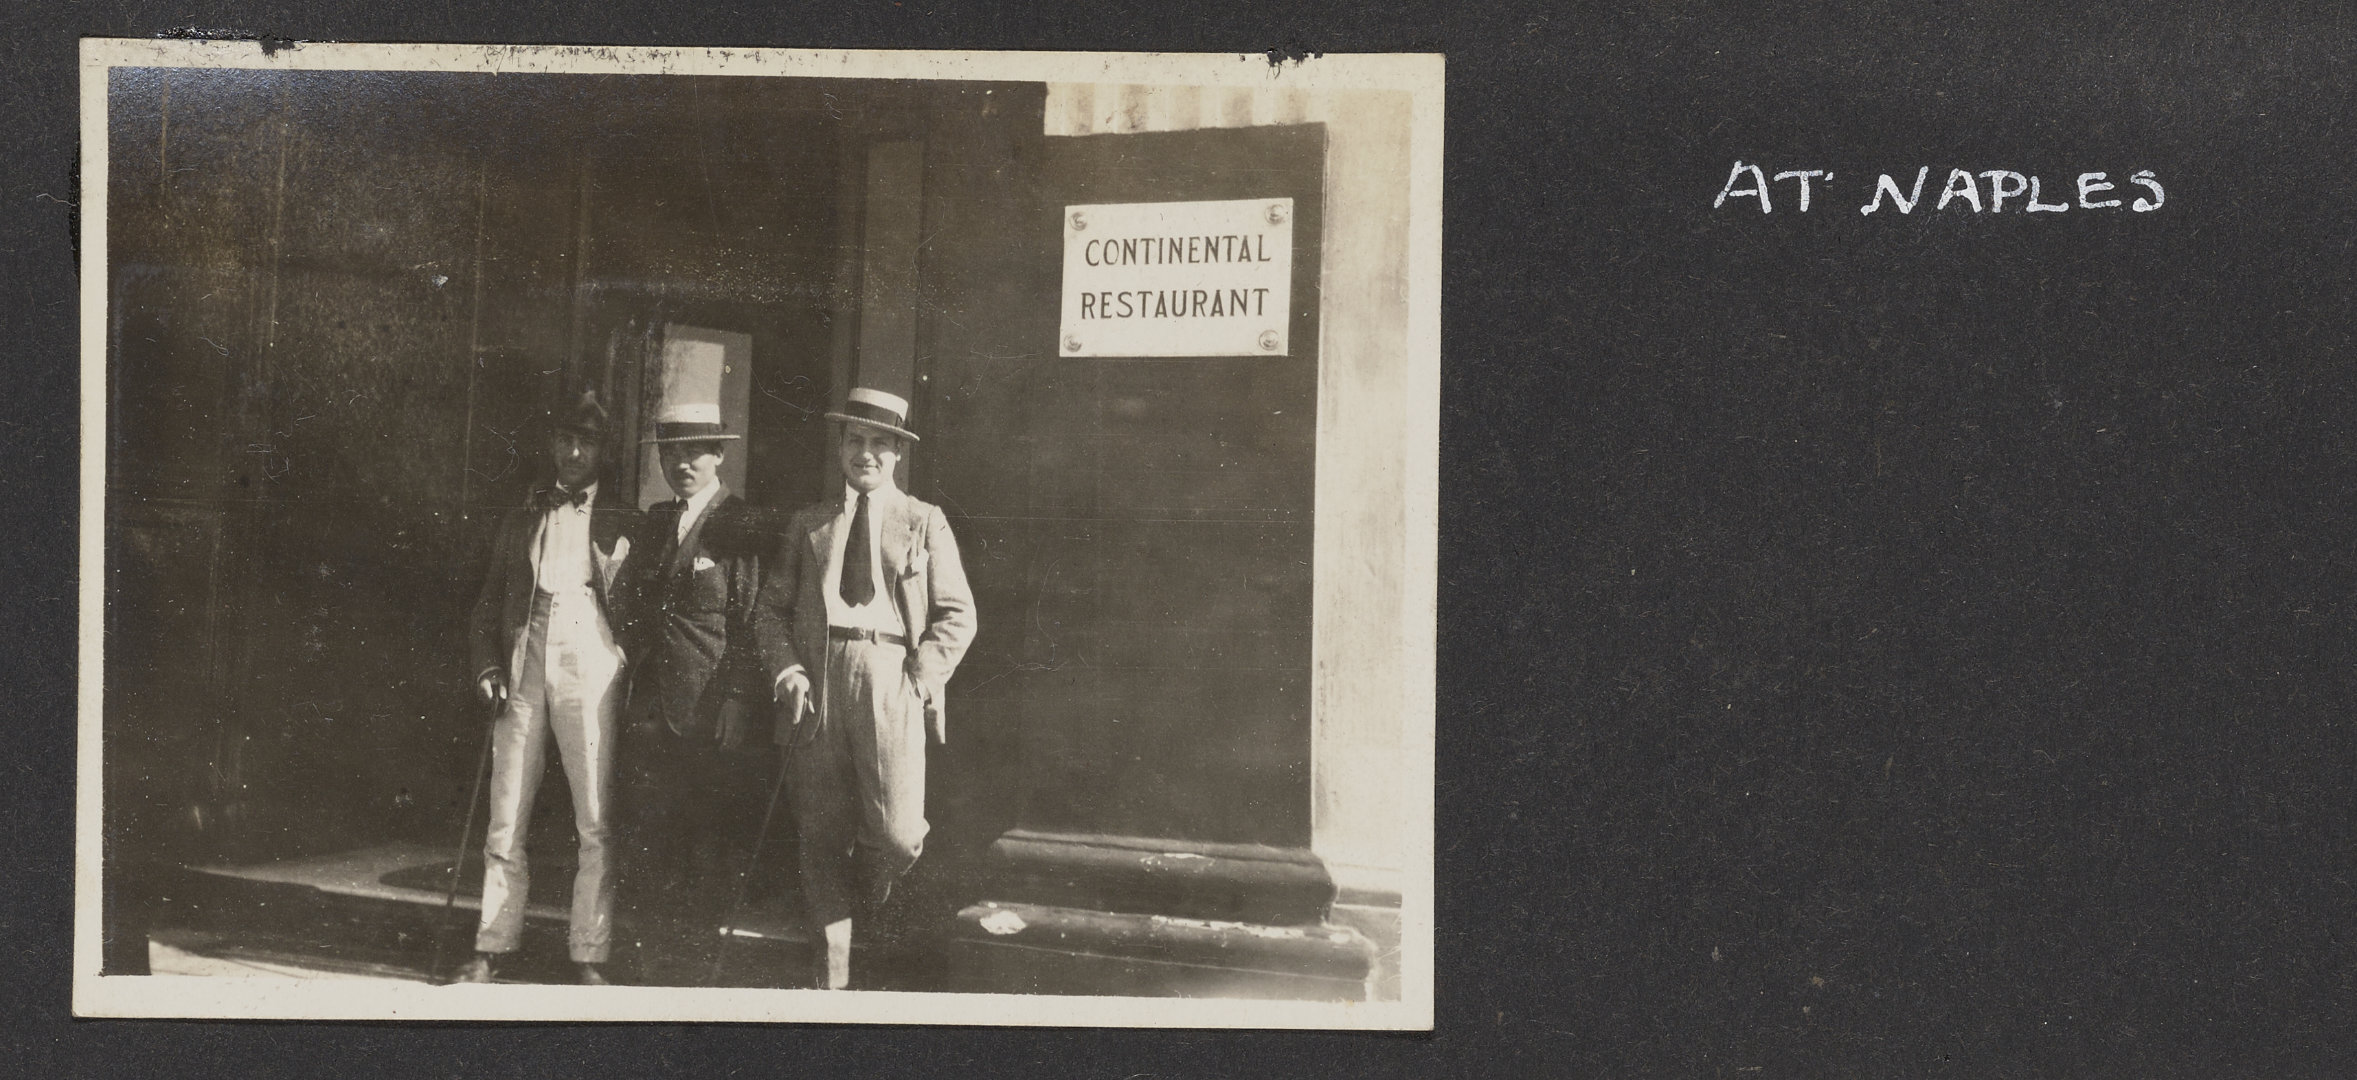 CONTINENTAL
RESTAURANT
AT NAPLES